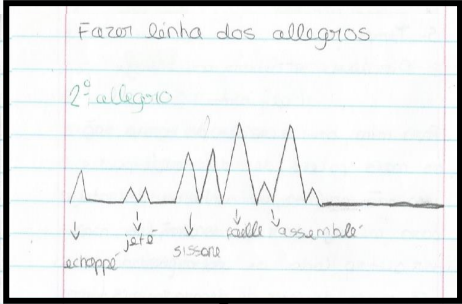 Fazer linha dos allegros
2º allegro
echappé
jeté
sissone
faille
assemblé